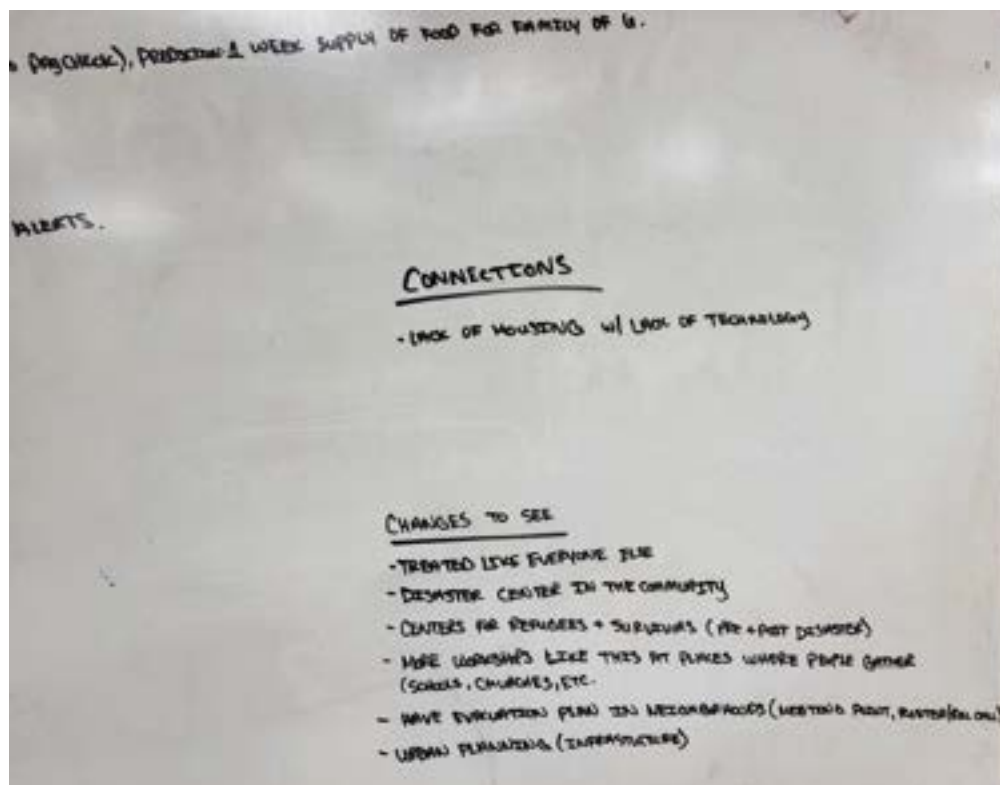 paycheck), PREDICTION 1 WEEK SUPPLY OF FOOD FOR FAMILY OF 6.
ALERTS.
CONNECTIONS
- LACK OF HOUSING w/ LACK OF TECHNOLOGY
CHANGES TO SEE
- TREATED LIKE EVERYONE ELSE
- DISASTER CENTER IN THE COMMUNITY
- CENTERS FOR REFUGEES + SURVIVORS (PRE + POST DISASTER)
- MORE WORKSHOPS LIKE THIS AT PLACES WHERE PEOPLE GATHER
(SCHOOLS, CHURCHES, ETC.
- HAVE EVACUATION PLAN IN NEIGHBORHOODS (MEETING POINT,
- URBAN PLANNING (INFRASTRUCTURE)